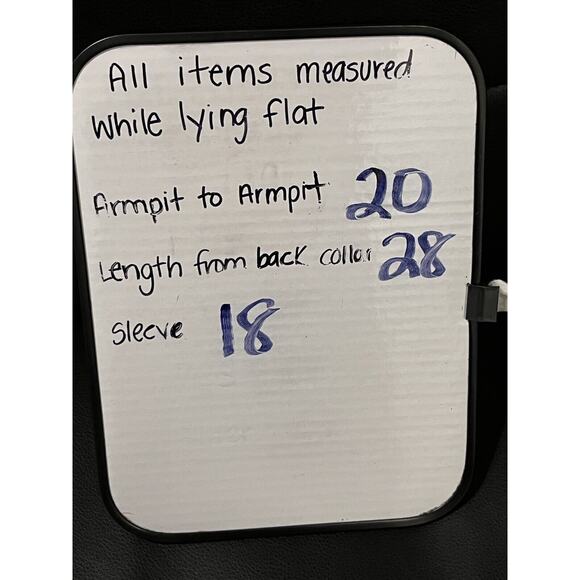 All items measured
while lying flat
Armpit to Armpit 20
Length from back collar 28
Sleeve 18